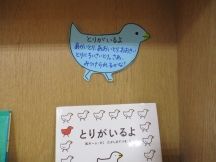 とりがいるよ
あかいとり、あおいとり、おおきい
とりにちいさいとり。さあ、
みつけられるかな？
とりがいるよ